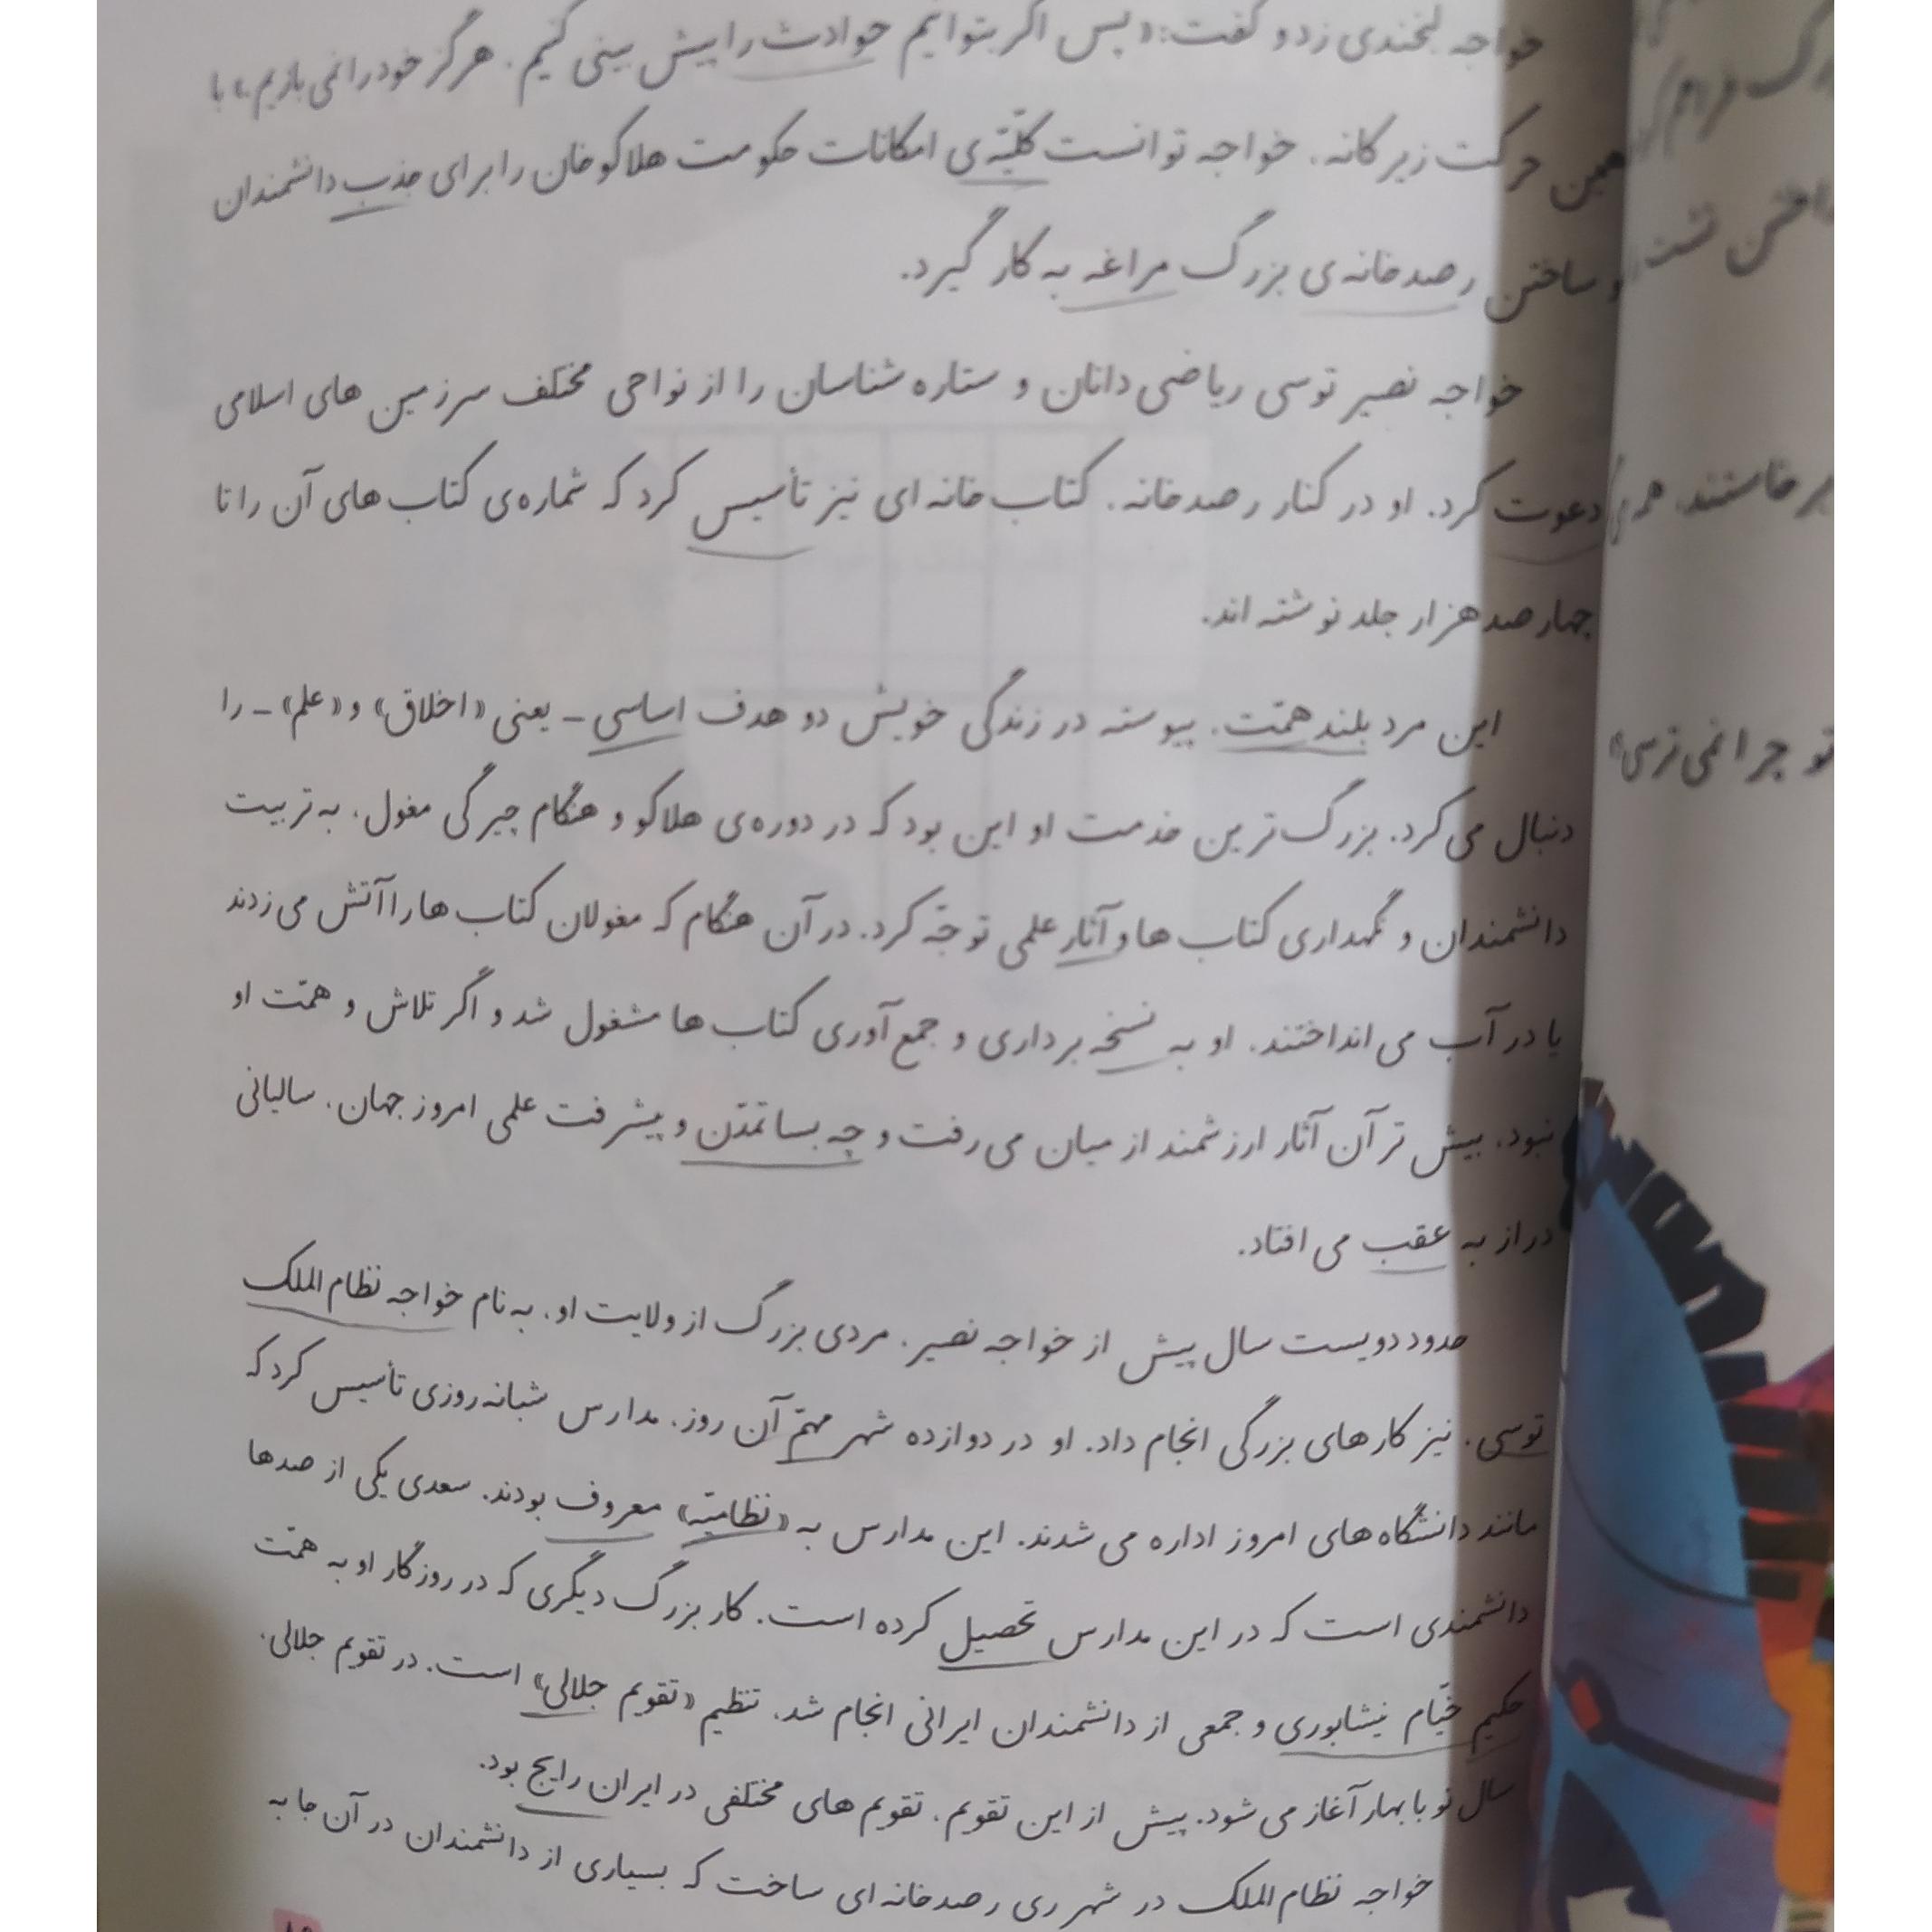 خواجه لبخندی زد و گفت: «پس اگر بتوانیم حوادث را پیش بینی کنیم، هرگز خود را نمی بازیم.» با
همین حرکت زیرکانه، خواجه توانست کلیّه‌ی امکانات حکومت هلاکوخان را برای جذب دانشمندان
و ساختن رصدخانه‌ی بزرگ مراغه به کار گیرد.
خواجه نصیر توسی ریاضی دانان و ستاره شناسان را از نواحی مختلف سرزمین های اسلامی
دعوت کرد. او در کنار رصدخانه، کتاب خانه ای نیز تأسیس کرد که شماره‌ی کتاب های آن را تا
چهارصد هزار جلد نوشته اند.
این مرد بلند همّت، پیوسته در زندگی خویش دو هدف اساسی - یعنی «اخلاق» و «علم» - را
دنبال می کرد. بزرگ ترین خدمت او این بود که در دوره‌ی هلاکو و هنگام چیرگی مغول، به تربیت
دانشمندان و نگهداری کتاب ها و آثار علمی توجّه کرد. در آن هنگام که مغولان کتاب ها را آتش می زدند
یا در آب می انداختند، او به نسخه برداری و جمع آوری کتاب ها مشغول شد و اگر تلاش و همّت او
نبود، بیش تر آن آثار ارزشمند از میان می رفت و چه بسا تمدّن و پیشرفت علمی امروز جهان، سالیانی
دراز به عقب می افتاد.
حدود دویست سال پیش از خواجه نصیر، مردی بزرگ از ولایت او، به نام خواجه نظام الملک
توسی، نیز کارهای بزرگی انجام داد. او در دوازده شهر مهمّ آن روز، مدارس شبانه روزی تأسیس کرد که
مانند دانشگاه های امروز اداره می شدند. این مدارس به «نظامیّه» معروف بودند. سعدی یکی از صدها
دانشمندی است که در این مدارس تحصیل کرده است. کار بزرگ دیگری که در روزگار او به همّت
حکیم خیّام نیشابوری و جمعی از دانشمندان ایرانی انجام شد، تنظیم «تقویم جلالی» است. در تقویم جلالی،
سال نو با بهار آغاز می شود. پیش از این تقویم، تقویم های مختلفی در ایران رایج بود.
خواجه نظام الملک در شهر ری رصدخانه ای ساخت که بسیاری از دانشمندان در آن جا به
برخاستند. همه‌ی
تو چرا نمی ترسی؟